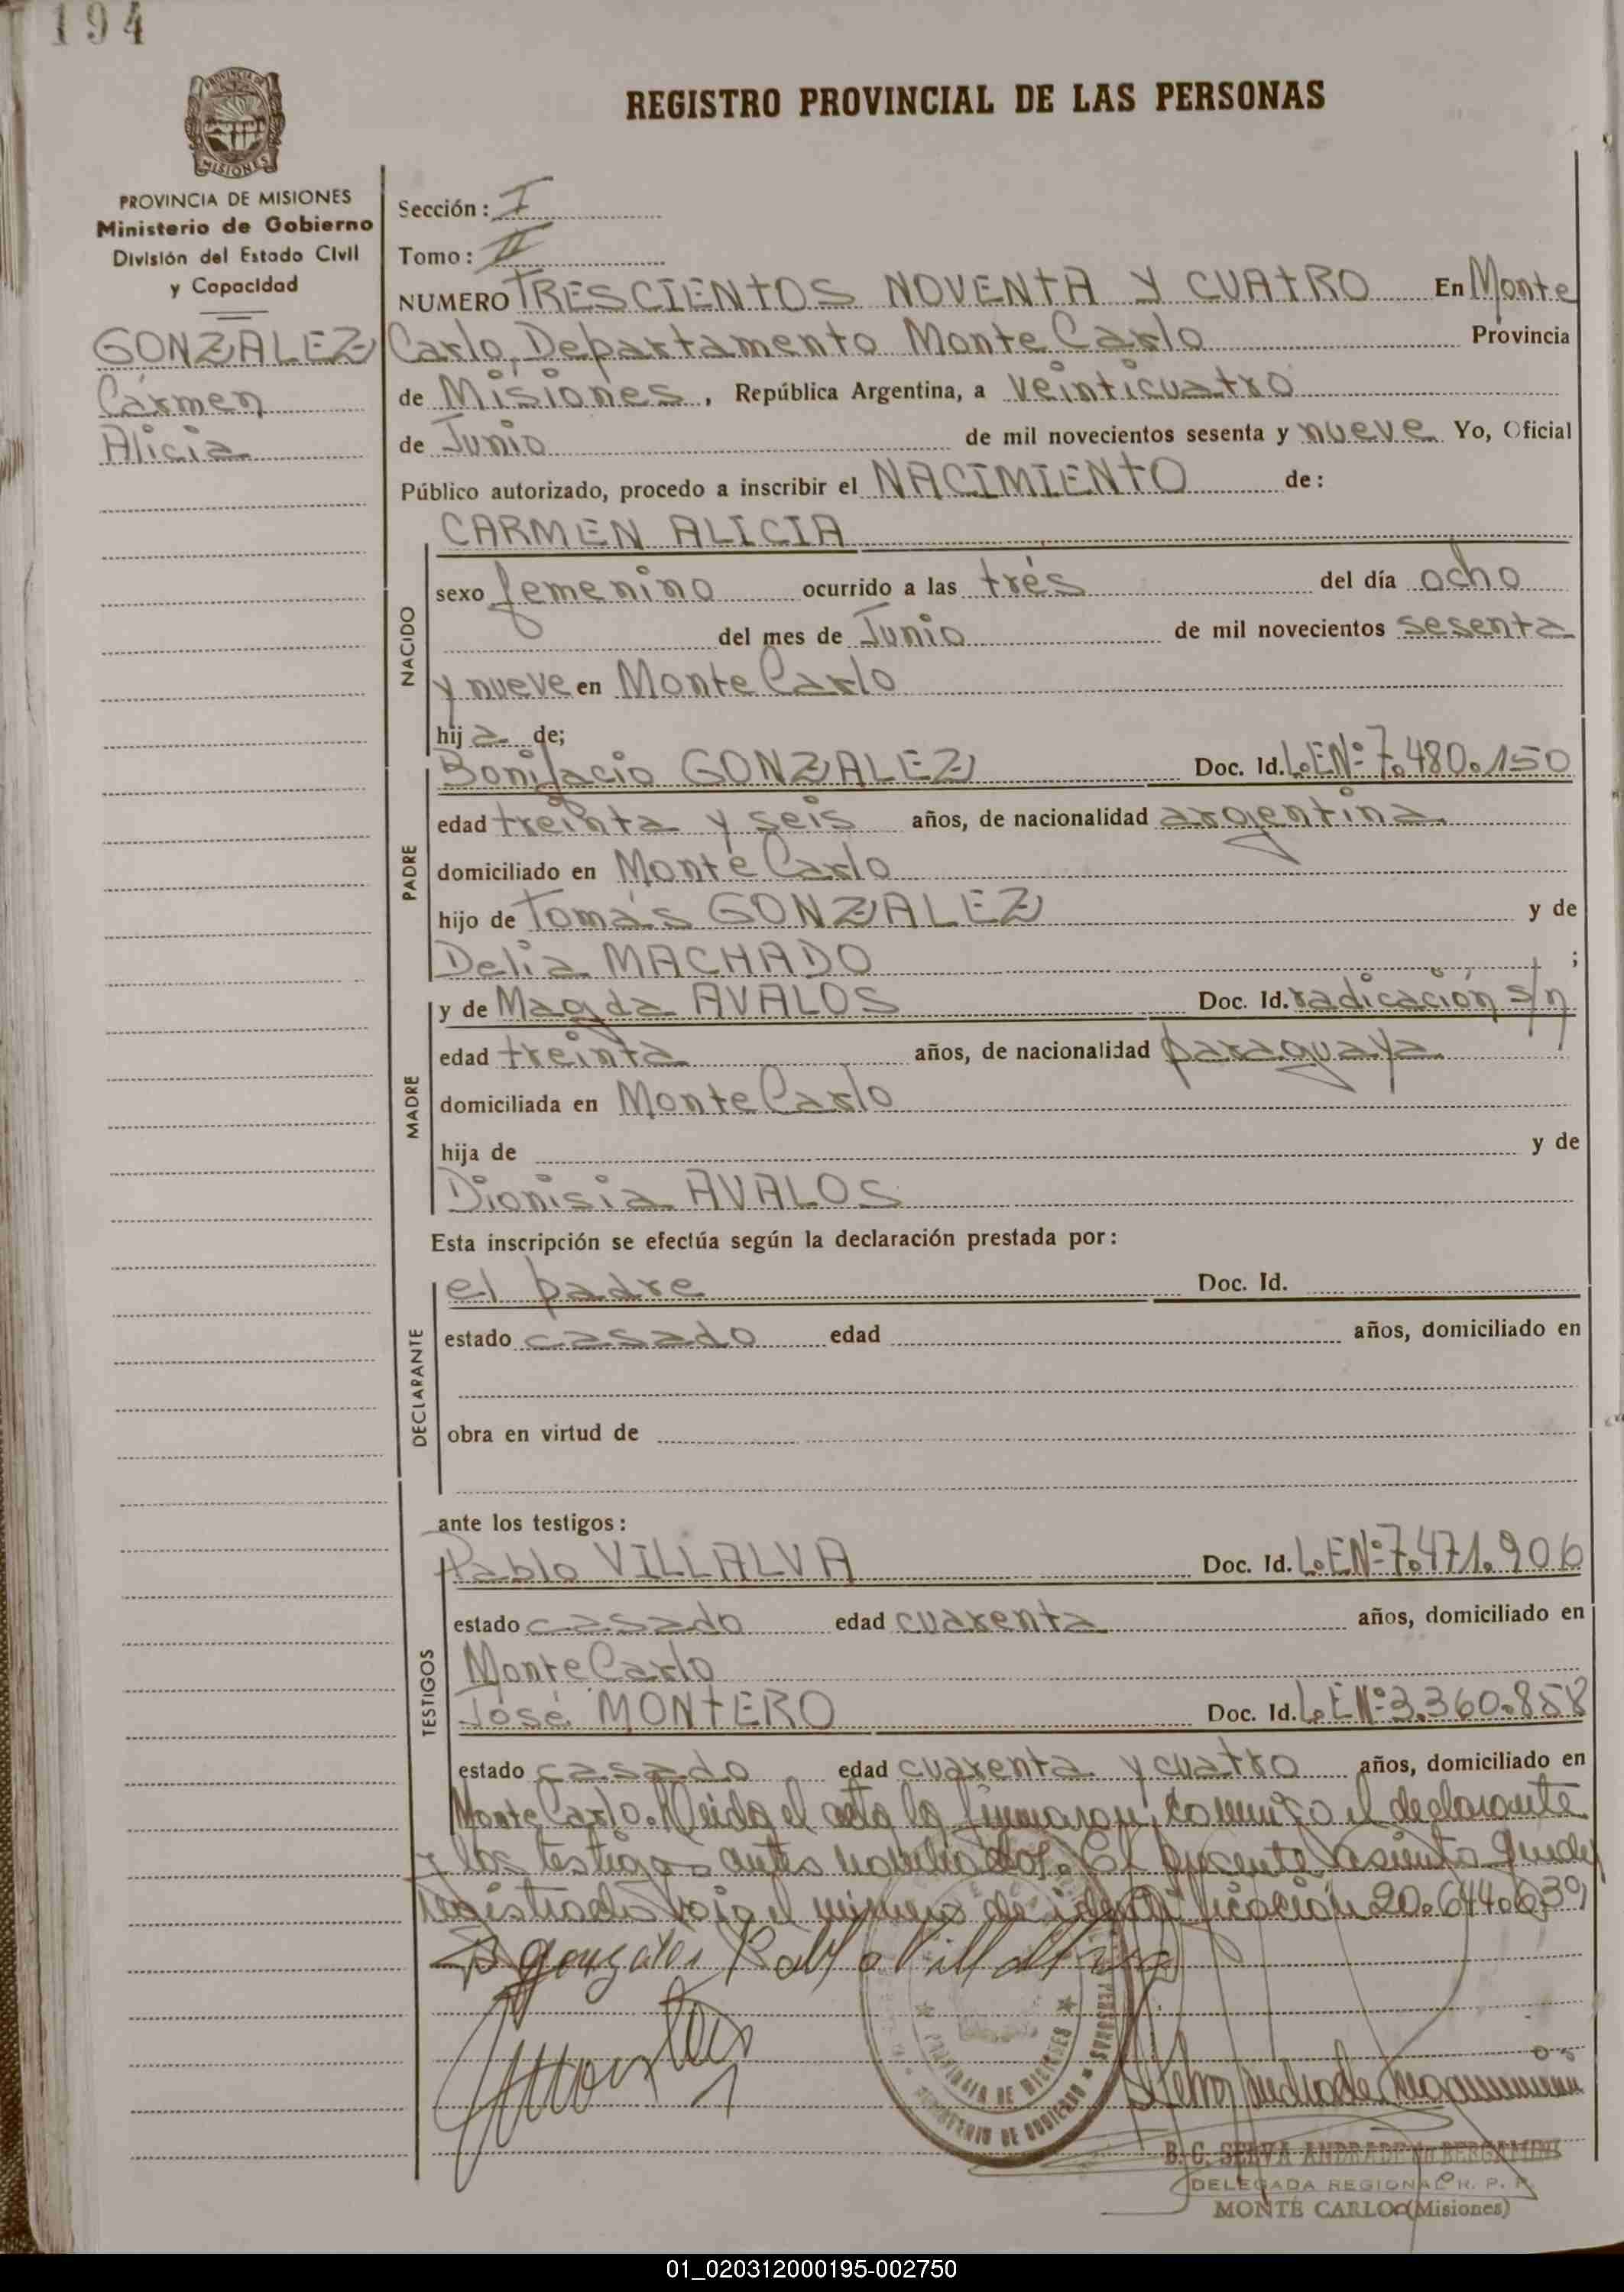 194
MISIONES
REGISTRO PROVINCIAL DE LAS PERSONAS
PROVINCIA DE MISIONES
Ministerio de Gobierno
División del Estado Civil
y Capacidad
GONZALEZ
Cármen
Alicia
Sección: I
Tomo: II
NUMERO TRESCIENTOS NOVENTA Y CUATRO En Monte
Carlo, Departamento Monte Carlo Provincia
de Misiones, República Argentina, a veinticuatro
de Junio de mil novecientos sesenta y nueve Yo, Oficial
Público autorizado, procedo a inscribir el NACIMIENTO de:
CARMEN ALICIA
NACIDO
sexo femenino ocurrido a las tres del día ocho
del mes de Junio de mil novecientos sesenta
y nueve en Monte Carlo
hija de;
PADRE
Bonifacio GONZALEZ Doc. Id. L.EN°7.480.150
edad treinta y seis años, de nacionalidad argentina.
domiciliado en Monte Carlo
hijo de Tomás GONZALEZ y de
Delia MACHADO ;
MADRE
y de Magda AVALOS Doc. Id. radicación s/n
edad treinta años, de nacionalidad paraguaya
domiciliada en Monte Carlo
hija de y de
Dionisia AVALOS
Esta inscripción se efectúa según la declaración prestada por:
DECLARANTE
el padre Doc. Id.
estado casado edad años, domiciliado en
obra en virtud de
ante los testigos:
TESTIGOS
Pablo VILLALVA Doc. Id. L.EN°7.471.906
estado casado edad cuarenta años, domiciliado en
Monte Carlo
José MONTERO Doc. Id. L.EN°3.360.858
estado casado edad cuarenta y cuatro años, domiciliado en
Monte Carlo. Leida el acta la firmaron conmigo el declarante
y los testigos antes nombrados. El presente asiento queda
registrado bajo el número de identificación 20.644.639
B gonzales Pablo Villalva
PROVINCIA DE MISIONES
MINISTERIO DE GOBIERNO
PERSONAS
B. C. SERVA ANDRADE de BERGAMINI
DELEGADA REGIONAL R. P. P.
MONTE CARLO (Misiones)
01_020312000195-002750